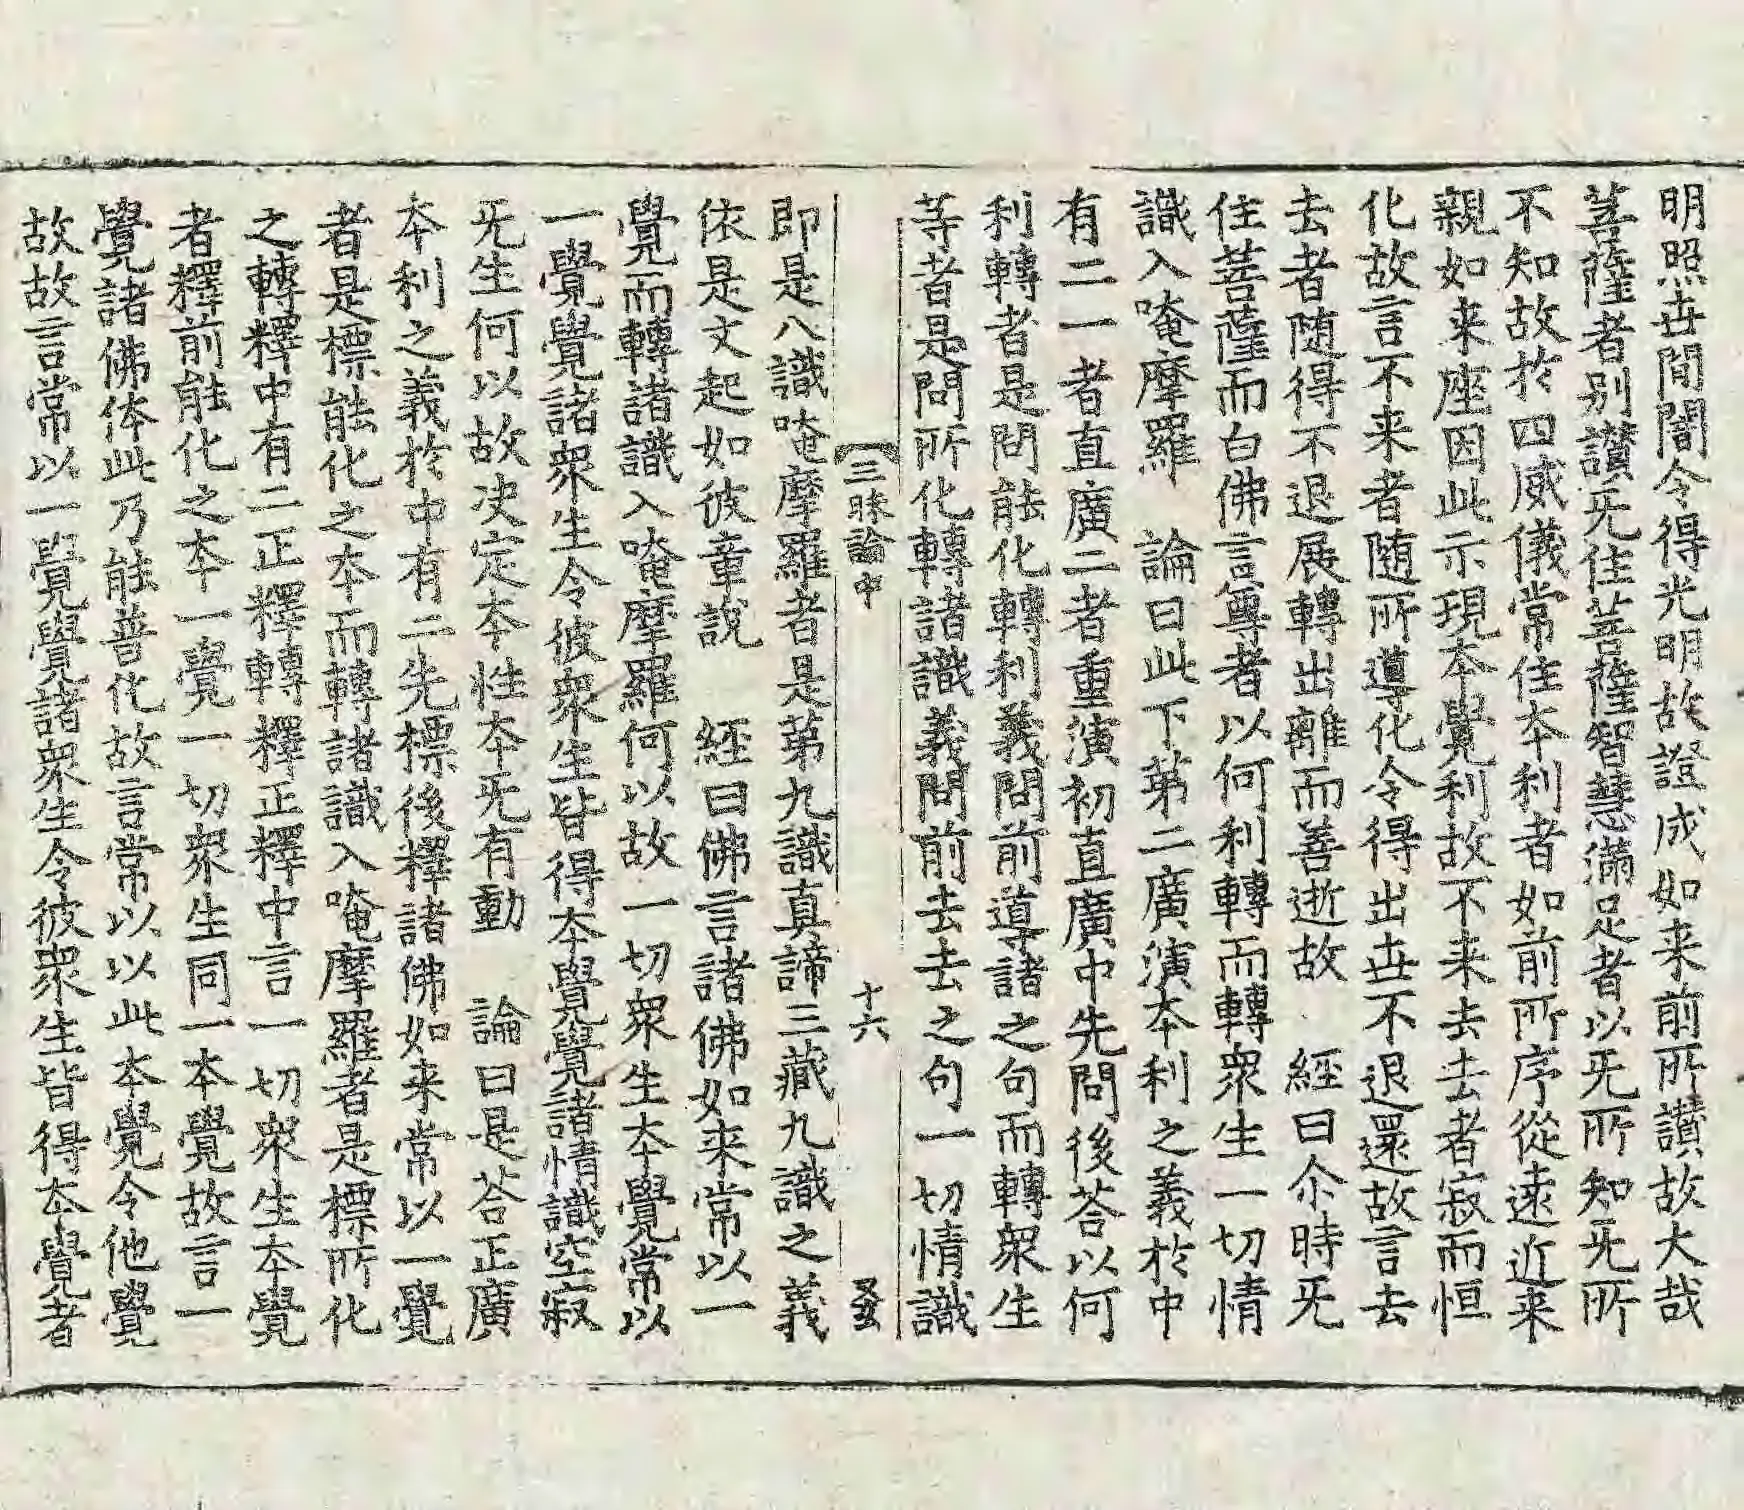 明照世間闇令得光明故證成如来前所讃故大哉
菩薩者别讃无住菩薩智慧满足者以无所知无所
不知故於四威儀常住本利者如前所序從遠近来
親如来座因此示現本覺利故不来去去者寂而恒
化故言不来者随所導化令得出世不退還故言去
去者随得不退展轉出離而善逝故　經曰尒時无
住菩薩而白佛言尊者以何利轉而轉衆生一切情
識入唵摩羅　論曰此下第二廣演本利之義於中
有二一者直廣二者重演初直廣中先問後荅以何
利轉者是問能化轉利義問前導諸之句而轉衆生
等者是問所化轉諸識義問前去去之句一切情識
三昧論中　十六　發
即是八識唵摩羅者是第九識真諦三藏九識之義
依是文起如彼章說　經曰佛言諸佛如来常以一
覺而轉諸識入唵摩羅何以故一切衆生本覺常以
一覺覺諸衆生令彼衆生皆得本覺覺諸情識空寂
无生何以故决定本性本无有動　論曰是荅正廣
本利之義於中有二先標後釋諸佛如来常以一覺
者是標能化之本而轉諸識入唵摩羅者是標所化
之轉釋中有二正釋轉釋正釋中言一切衆生本覺
者釋前能化之本一覺一切衆生同一本覺故言一
覺諸佛体此乃能普化故言常以以此本覺令他覺
故故言常以一覺覺諸衆生令彼衆生皆得本覺者